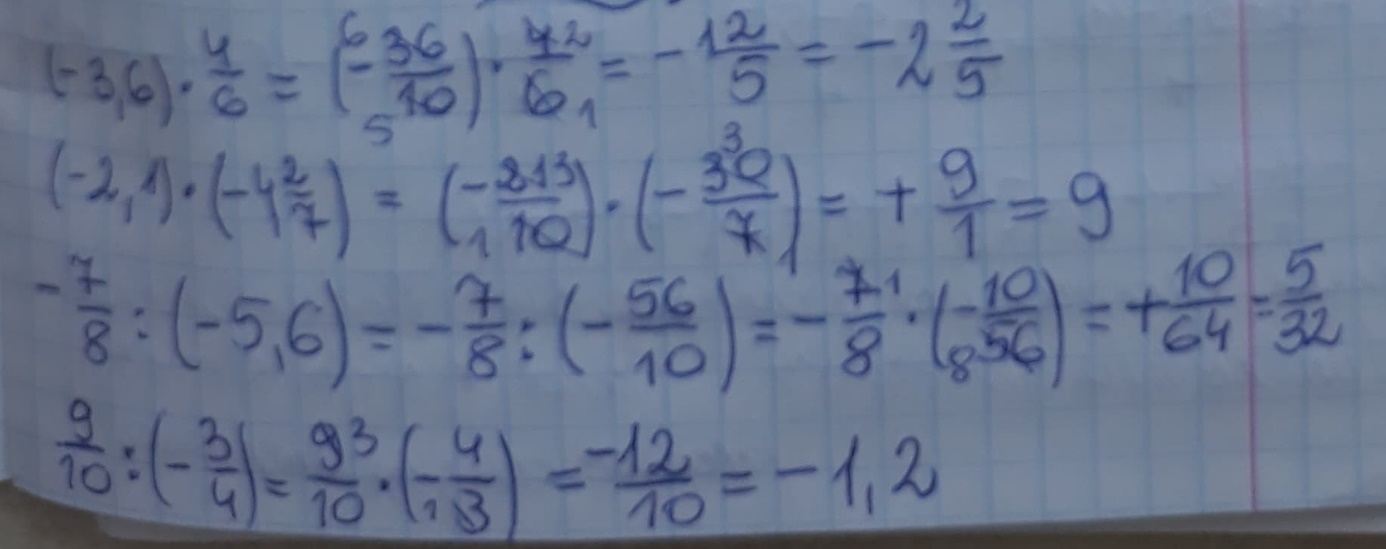 (-3,6) · 4/6 = (-36/10) · 4/6 = -12/5 = -2 2/5
(-2,1) · (-4 2/7) = (-21/10) · (-30/7) = + 9/1 = 9
-7/8 : (-5,6) = -7/8 : (-56/10) = -7/8 · (-10/56) = +10/64 = 5/32
9/10 : (-3/4) = 9/10 · (-4/3) = -12/10 = -1,2